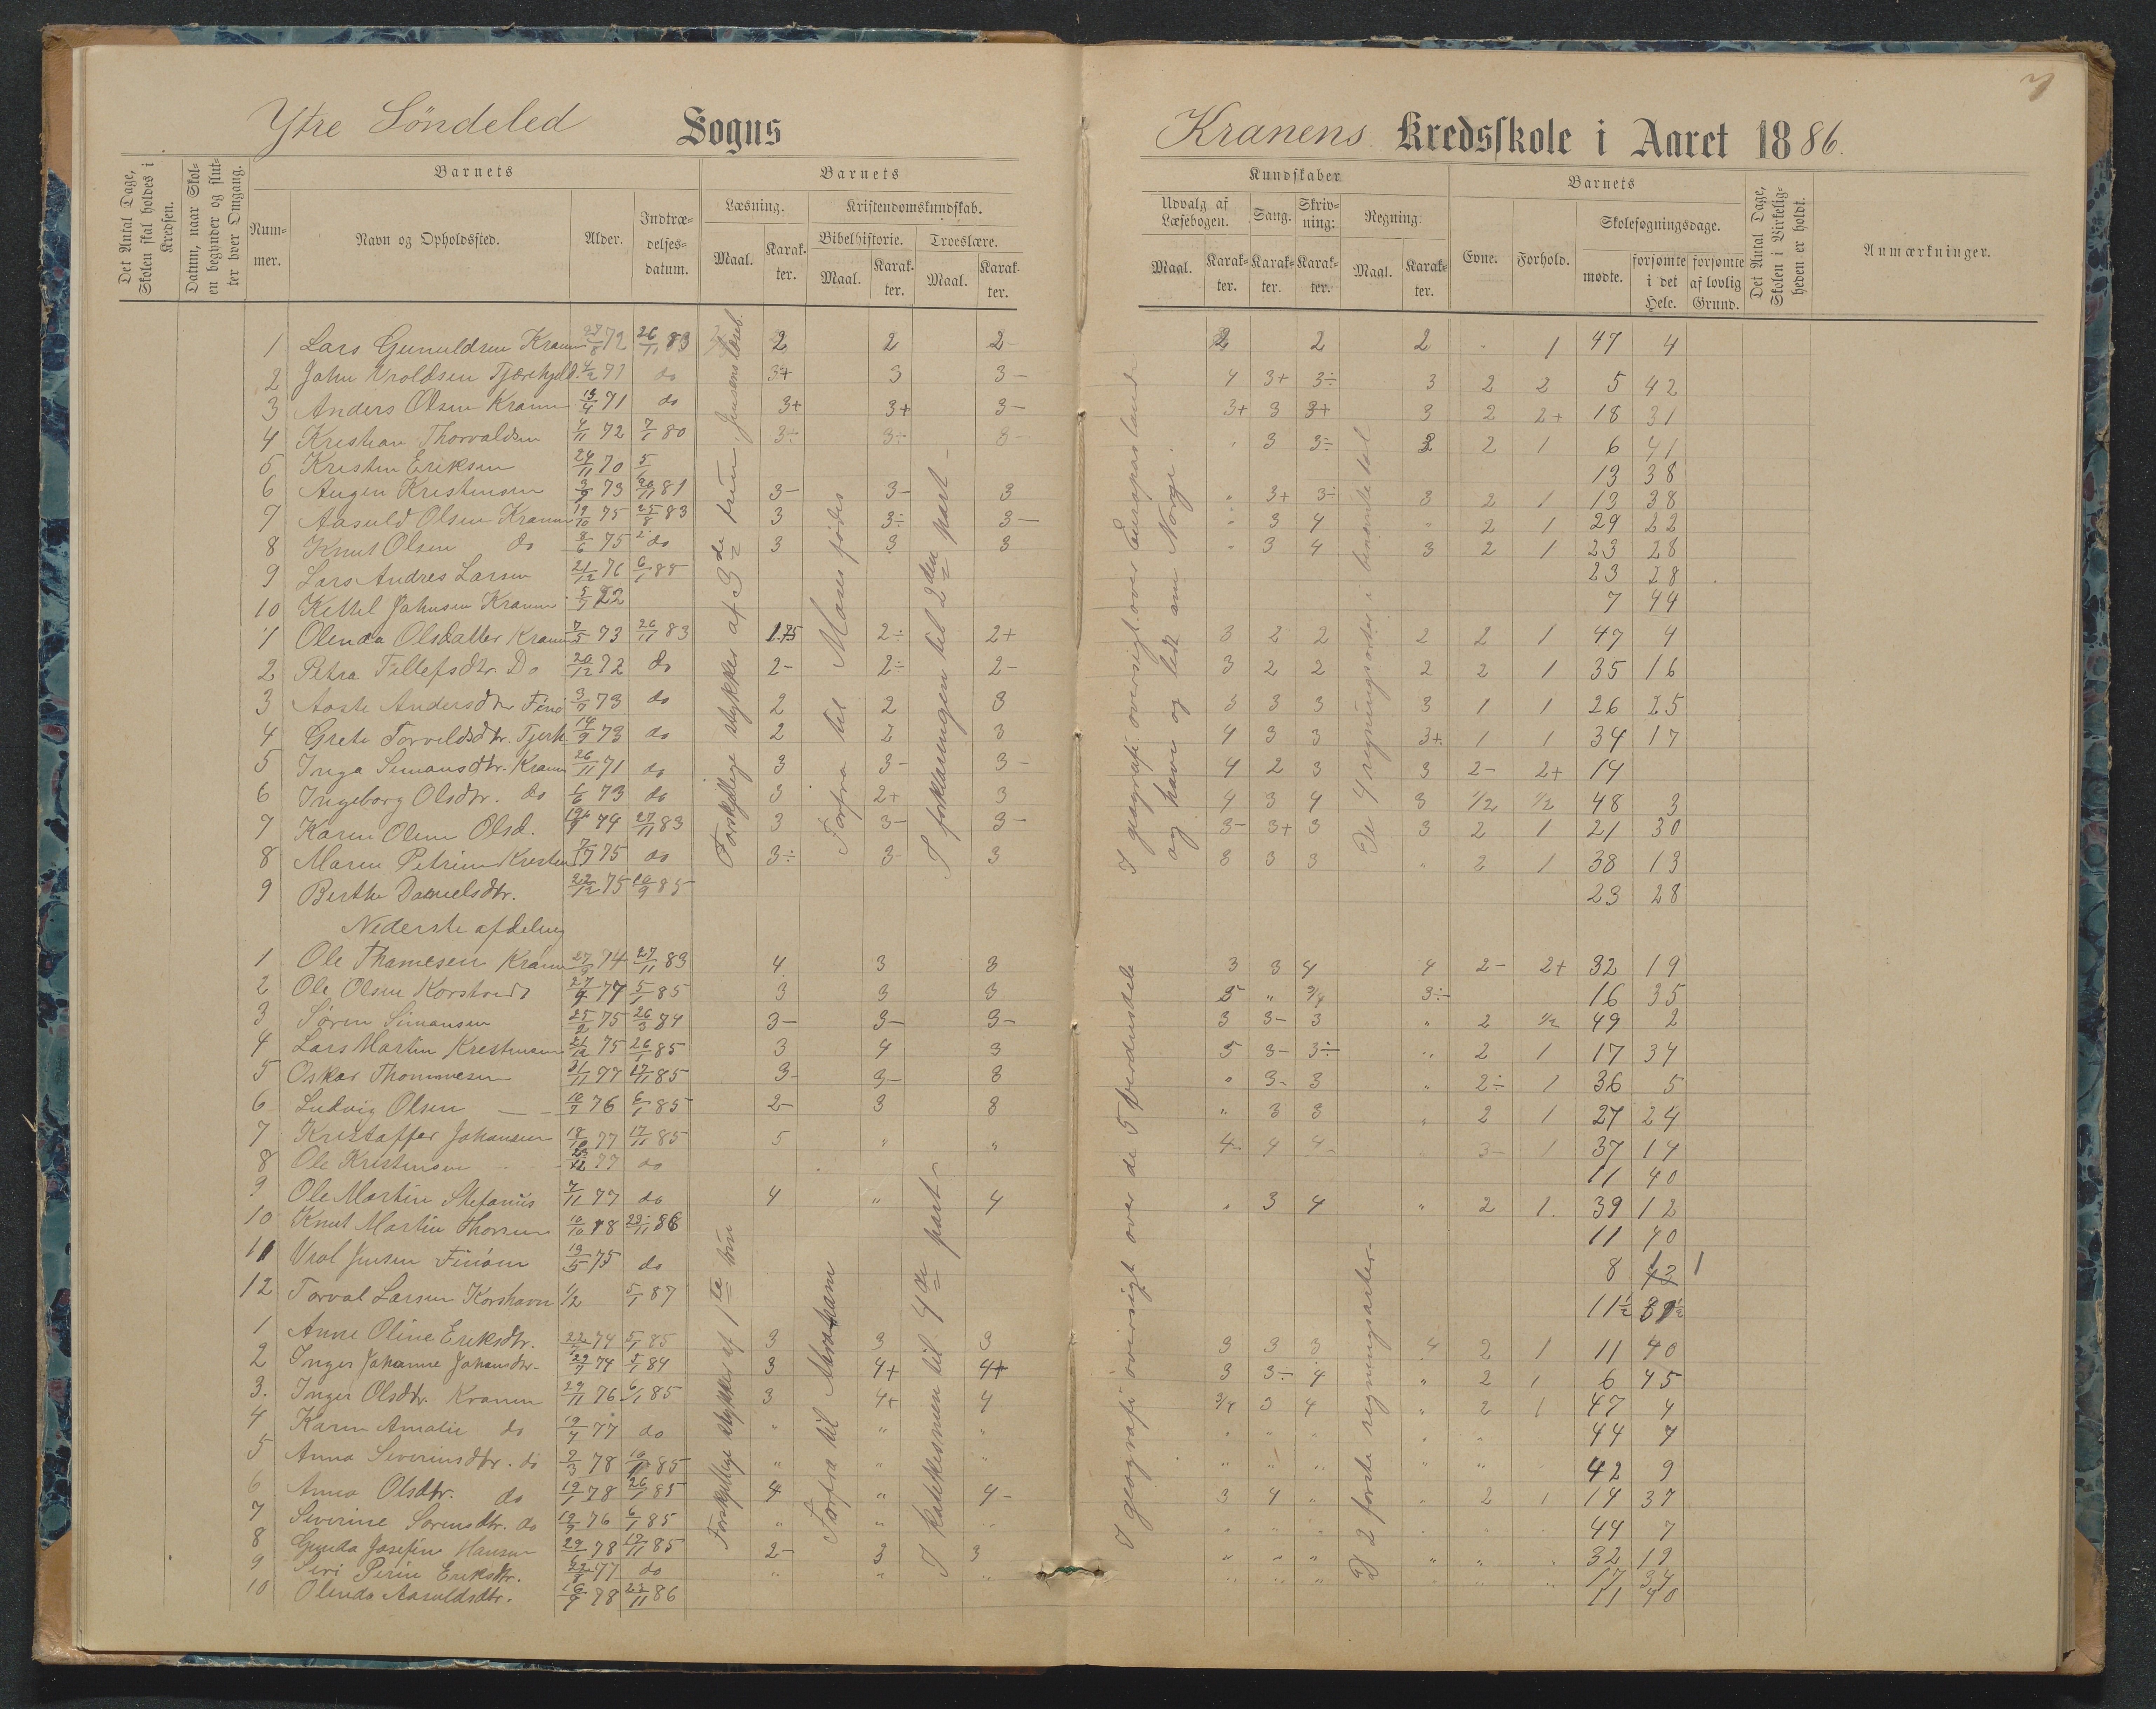 7
Ytre Söndeled Sogns
Kranens. Kredsskole i Aaret 1886.
Det Antal Dage, Skolen skal holdes i Kredsen.
Datum, naar Skolen begynder og slutter hver Omgang.
Barnets
Nummer.
Navn og Opholdssted.
Alder.
Indtrædelsesdatum.
Barnets
Læsning.
Maal.
Karakter.
Kristendomskundskab.
Bibelhistorie.
Maal.
Karakter.
Troeslære.
Maal.
Karakter.
Kundskaber
Udvalg af Læsebogen.
Maal.
Karakter.
Sang.
Karakter.
Skrivning:
Karakter.
Regning.
Maal.
Karakter.
Barnets
Evne.
Forhold.
Skolesøgningsdage.
mødte.
forsømte i det Hele.
forsømte af lovlig Grund.
Det Antal Dage, Skolen i Virkeligheden er holdt.
Anmærkninger.
1 Lars Gunuldsen 72 26/11 83 2 2 2- 2 2 2 1 47 4
2 John Vroldsen 4/2 71 do 3+ 3 3- 4 3+ 3÷ 3 2 2 5 42
3 Anders Olsen Kranen 71 do 3+ 3+ 3- 3+ 3 3+ 3 2 2+ 18 31
4 Kristian Thorvaldsen 72 7/1 80 3÷ 3÷ 3- 3 3÷ 2 1 6 41
5 Kristen Eriksen 24/11 70 13 38
6 Augen Kristensen 73 81 3- 3- 3 " 3+ 3÷ 3 2 1 13 38
7 Aasuld Olsen Kranen 19/10 75 25/8 83 3 3÷ 3- " 3 4 " 2 1 29 22
8 Knut Olsen do 75 do 3 3 3 " 3 4 3 2 1 23 28
9 Lars Andres Larsen 21/12 76 6/1 85 23 28
10 Kettel Johnsen Kranen 7 44
1 Olenda Olsdatter Kranen 7/5 73 26/11 83 1.75 2÷ 2+ 3 2 2 2 2 1 47 4
2 Petra Tellefsdtr. Do 26/12 72 do 2- 2÷ 2- 3 2 2 2 2 1 35 16
3 Aaste Andersdtr 73 do 2 2 3 3 3 3 3 1 1 26 25
4 Grete Torvildsdtr. Tjerh. 14/9 73 do 2 2 3 4 3 3 3+ 1 1 34 17
5 Inga Simonsdtr. Kranen 26/11 71 do 3 3- 3- 4 2 3 3 2- 2+ 14
6 Ingeborg Olsdtr. do 73 do 3 2+ 3 4 3 4 3 1/2 1/2 48 3
7 Karen Olene Olsd. 74 27/11 83 3 3- 3- 3- 3+ 3 3 2 1 21 30
8 Maren Petrine 75 do 3÷ 3- 3 3 3 3 " 2 1 38 13
9 Berthe Danielsdtr. 22/12 75 85 23 28
Nederste afdeling
1 Ole Thomesen 74 27/11 83 4 3 3 3 3 4 4 2- 2+ 32 19
2 Ole Olsen 77 5/1 85 3 3 3 5 " 3/4 3÷ 16 35
3 Søren Simonsen 25/2 75 26/3 84 3- 3- 3- 3 3- 3 " 2 1/2 49 2
4 Lars Martin 21/12 75 26/1 85 3 4 3 5 3- 3÷ " 2 1 17 34
5 Oskar Thommesen 77 17/11 85 3- 3- 3 " 3- 3 " 2÷ 1 36 5
6 Ludvig Olsen 76 6/1 85 2- 3 3 " 3 3 " 2 1 27 24
7 Kristoffer Johansen 18/10 77 17/11 85 5 " " 4- 4 4- 3- 1 37 14
8 Ole Kristensen 77 do 11 40
9 Ole Martin Stefanus 7/11 77 do 4 " 4 " 3 4 " 2 1. 39 12
10 Knut Martin 10/10 78 86 11 40
11 Vrol Jensen 19/5 75 do 8 43 1
12 Torval Larsen Korshavn 1/2 5/1 87 11 1/2 39 1/2
1 Anne Oline Eriksdtr. 74 5/1 85 3 3 3 3 3 3 4 2 1 11 40
2 Inger Johanne Johansdtr. 74 5/1 84 3 4+ 4+ 3 3÷ 4 " 2 1 6 45
3. Inger Olsdtr. Kranen 29/11 76 6/1 85 3 4+ 4 3/4 3 4 " 2 1 47 4
4 Karen Amalie do 77 do " " " 44 7
5 Anna Severinsdtr. do 2/3 78 85 " " " 42 9
6 Anna Olsdtr. do 19/1 78 26/1 85 4 " 4- 3 4 " " 2 1 14 37
7 Severine Sørensdtr. do 76 6/1 85 " " " 44 7
8 Gunda Josefine Hansen 78 17/11 85 2- 3 3 " " " 32 19
9 Siri Pirine Eriksdtr. 77 do " " " 17 34
10 Olenda Aasuldsdtr. 78 86 11 40
Forskjellige stykker af 3de trin. Jensens læseb.
Forfra til Moses fødes
I forklaringen til 2den part -
I geografi oversigt over Europas lande og have og lidt om Norge.
De 4 regningsarter i benævnte tal
Forskjellige stykker af 1te trin
Forfra til Abraham
I Katekismen til 4de part
I geografi oversigt over de 5 verdensdele
D 2 første regningsarter-